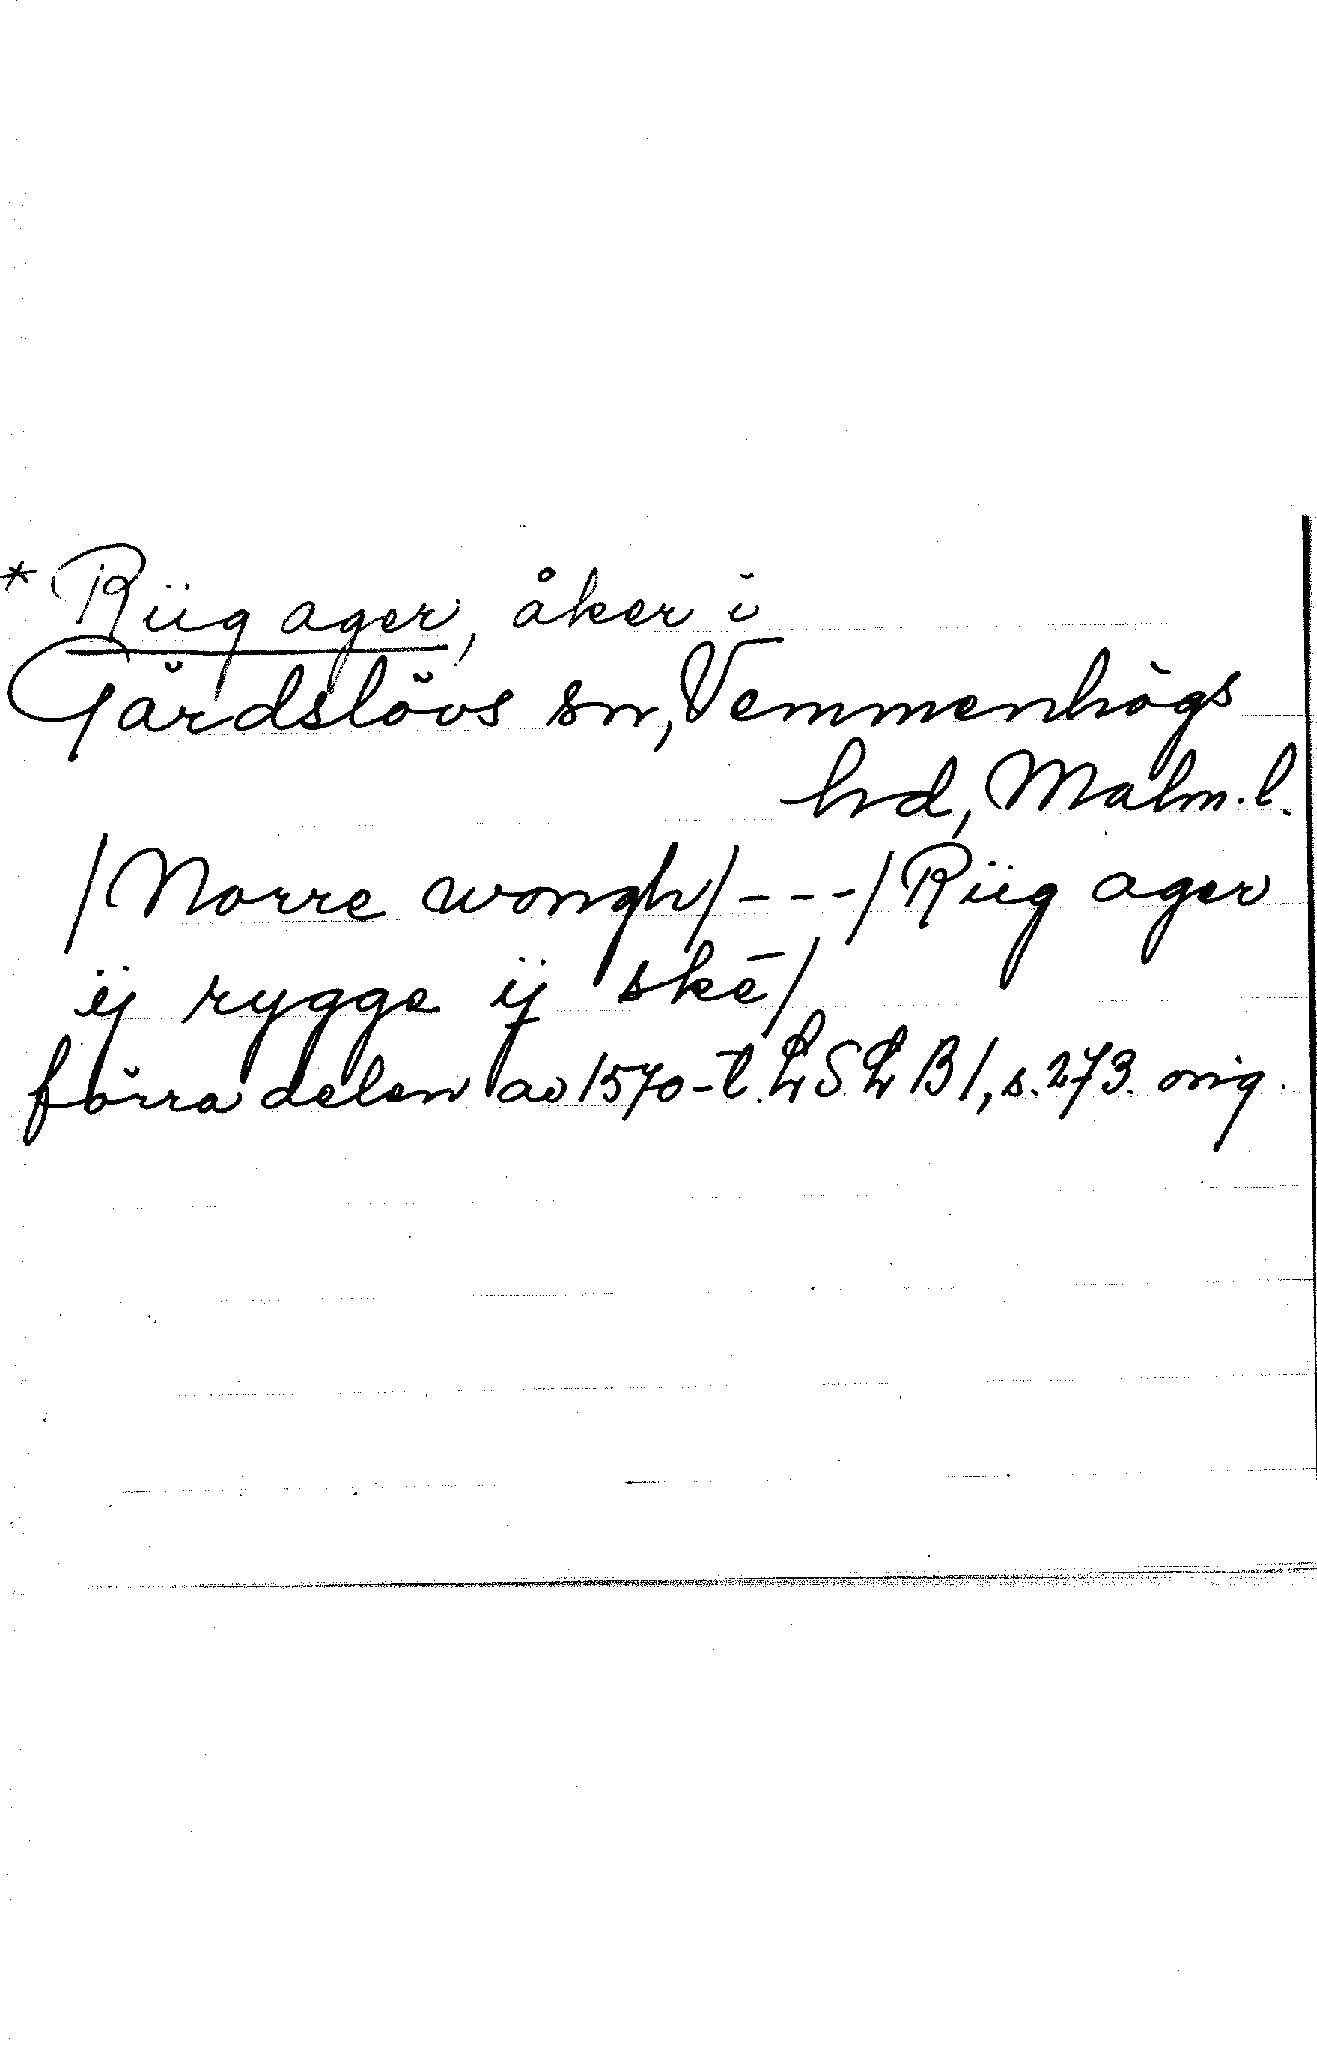 * Riig ager, åker i
Gärdslövs sn, Vemmenhögs
hd, Malm. l.
/Norre wongh/---/Riig ager
ij rygge ij skē/
förra delen av 1570-t. LSLB1, s. 273. orig.